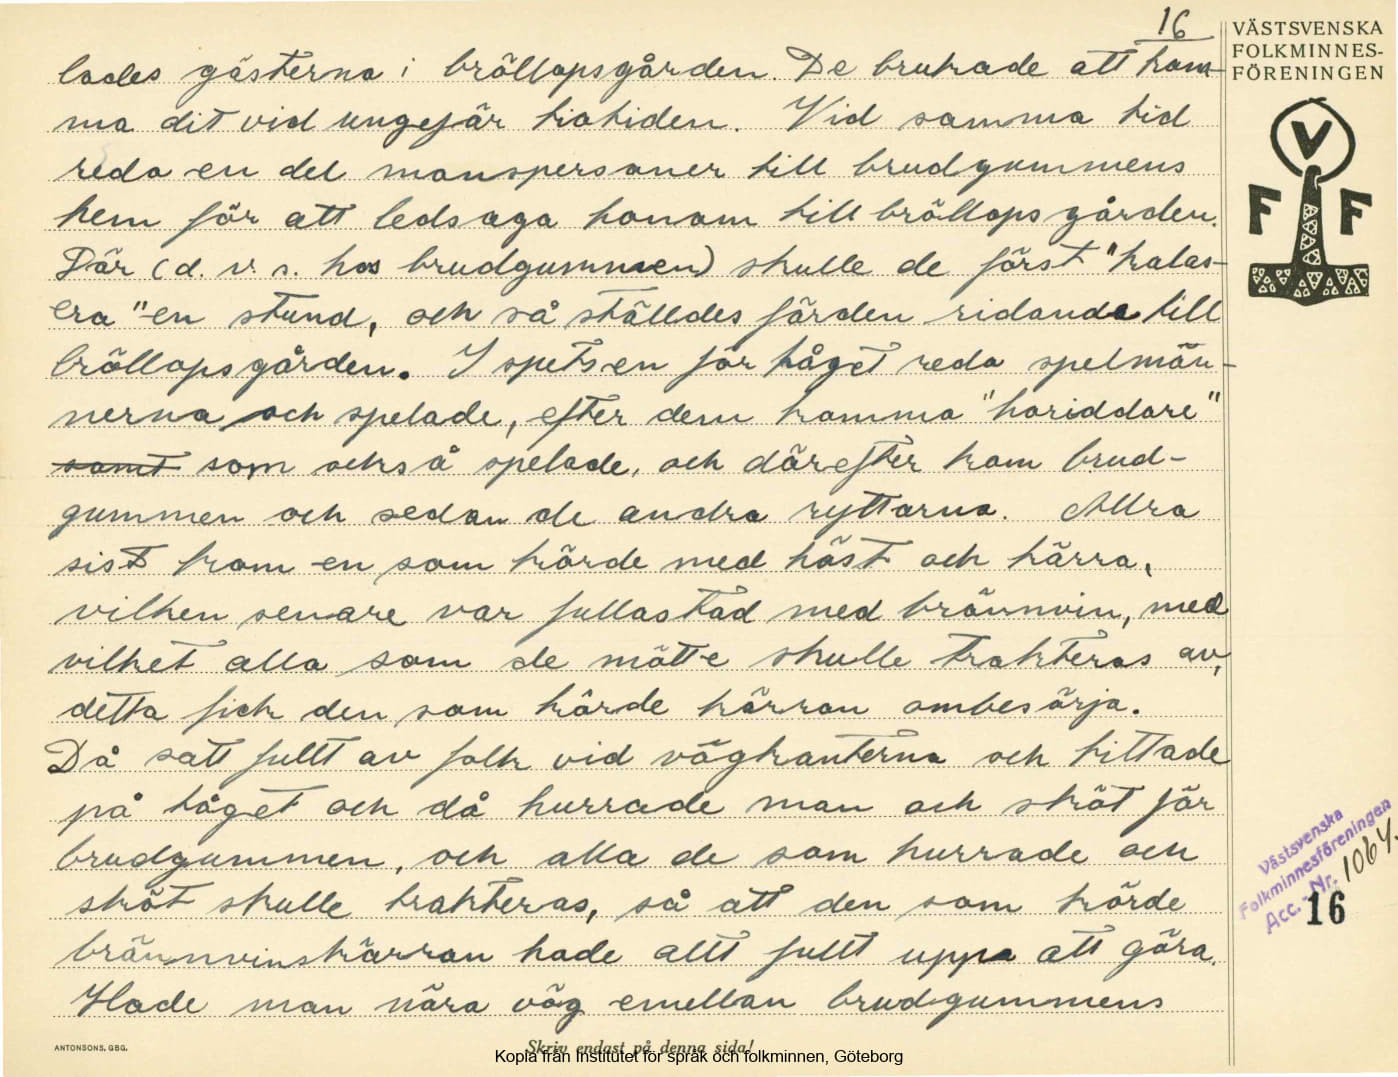 16
VÄSTSVENSKA
FOLKMINNES-
FÖRENINGEN
V
F F
lades gästerna i bröllopsgården. De brukade att kom-
ma dit vid ungefär tiotiden. Vid samma tid
redo en del manspersoner till brudgummens
hem för att ledsaga honom till bröllopsgården.
Där (d. v. s. hos brudgummen) skulle de först "kalas-
era" en stund, och så ställdes färden ridande till
bröllopsgården. I spetsen för tåget redo spelmän-
nerna och spelade, efter dem kommo "horiddare"
samt som också spelade, och därefter kom brud-
gummen och sedan de andra ryttarna. Allra
sist kom en som körde med häst och kärra,
vilken senare var fullastad med brännvin, med
vilket alla som de mötte skulle trakteras av,
detta fick den som körde kärran ombesörja.
Då satt fullt av folk vid vägkanterna och tittade
på tåget och då hurrade man och sköt för
brudgummen, och alla de som hurrade och
sköt skulle trakteras, så att den som körde
brännvinskärran hade allt fullt uppa att göra.
Hade man nära väg emellan brudgummens
Västsvenska
Folkminnesföreningen
Acc. Nr. 1064.
16
ANTONSONS, GBG.
Skriv endast på denna sida!
Kopia från Institutet för språk och folkminnen, Göteborg